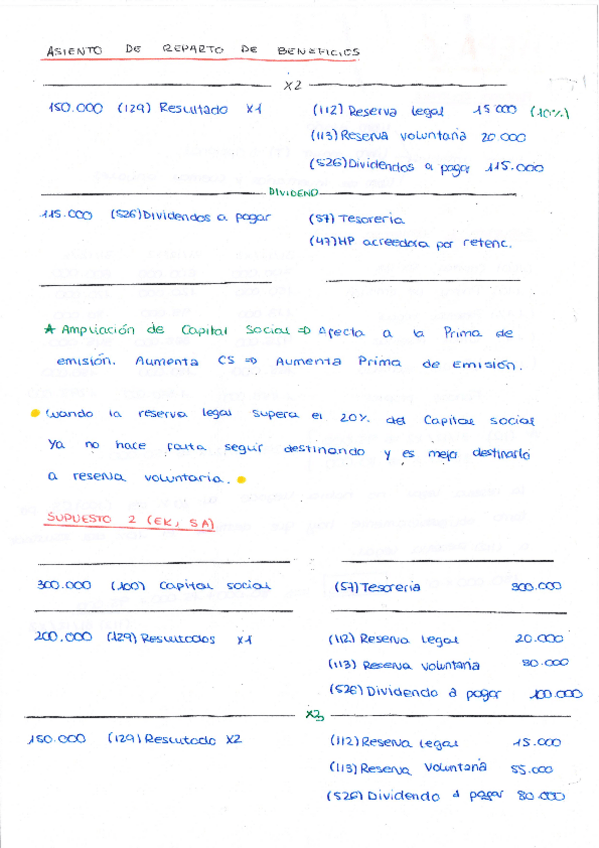 ASIENTO DE REPARTO DE BENEFICIOS
X2
150.000 (129) Resultado X1 (112) Reserva legal 15.000 (10%)
(113) Reserva voluntaria 20.000
(526) Dividendos a pagar 115.000
DIVIDENDO
115.000 (526) Dividendos a pagar (57) Tesoreria
(47) HP acreedora por retenc.
★ Ampliación de Capital Social => Afecta a la Prima de
emisión. Aumenta CS => Aumenta Prima de Emisión.
Cuando la reserva legal supera el 20% del Capital social
ya no hace falta seguir destinando y es mejor destinarlo
a reserva voluntaria.
SUPUESTO 2 (EK, SA)
300.000 (100) Capital social (57) Tesoreria 300.000
200.000 (129) Resultados X1 (112) Reserva legal 20.000
(113) Reserva voluntaria 80.000
(526) Dividendo a pagar 100.000
X3
150.000 (129) Resultado X2 (112) Reserva legal 15.000
(113) Reserva voluntaria 55.000
(526) Dividendo a pagar 80.000